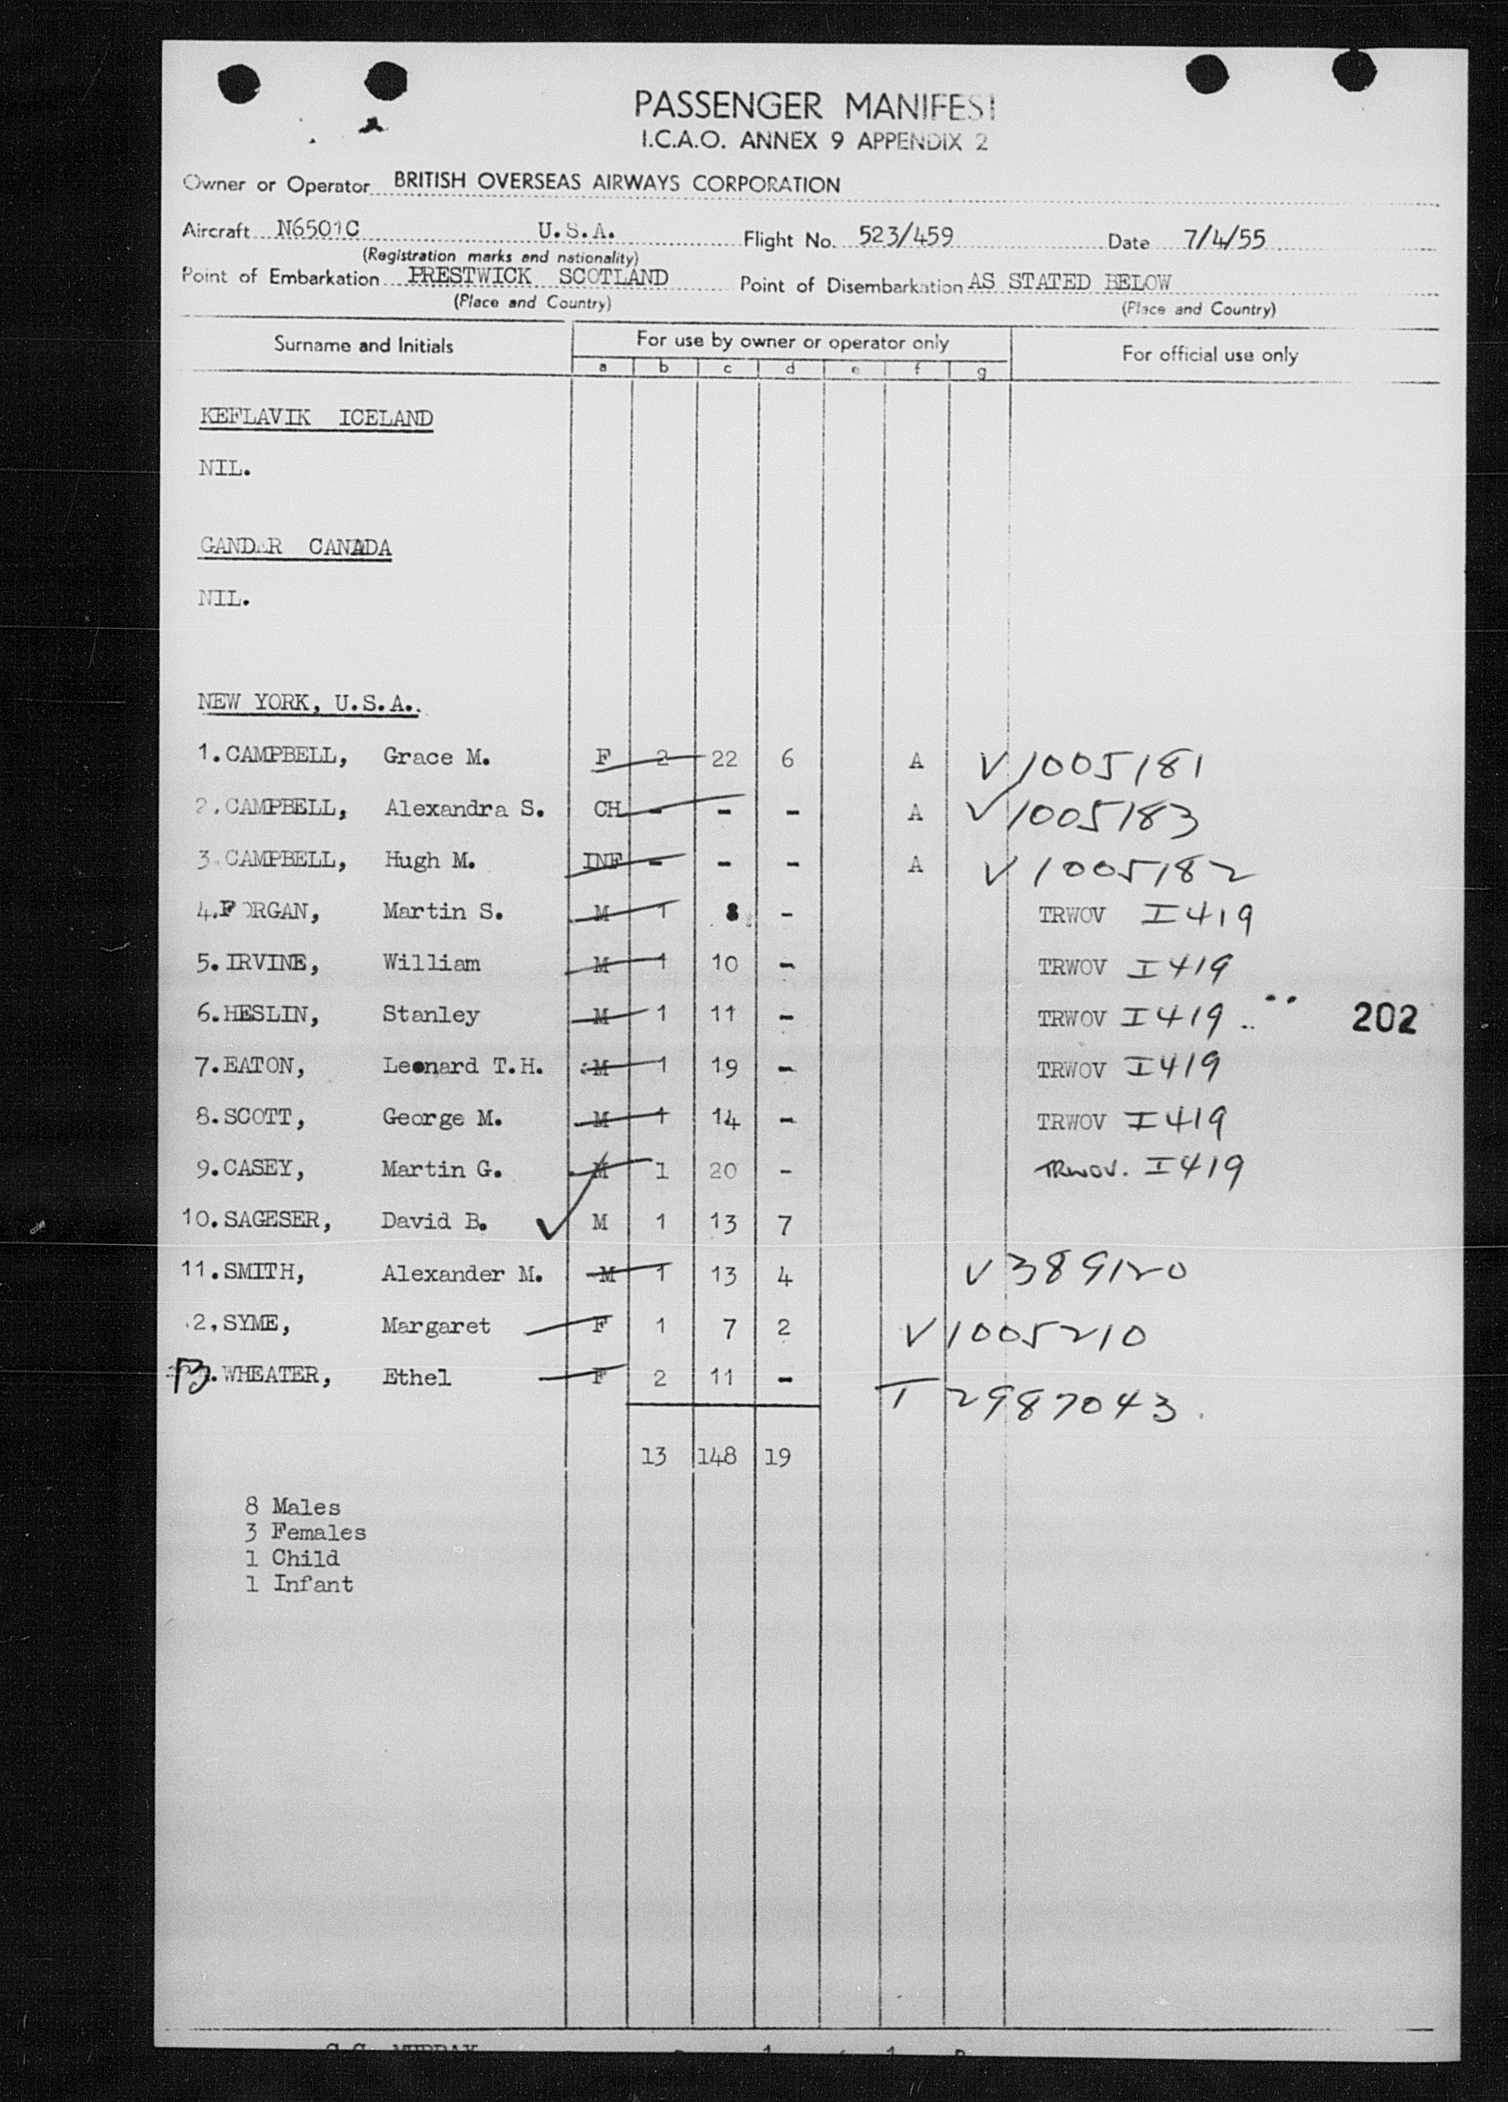 PASSENGER MANIFEST
I.C.A.O. ANNEX 9 APPENDIX 2
Owner or Operator BRITISH OVERSEAS AIRWAYS CORPORATION
Aircraft N6501C U.S.A. Flight No. 523/459 Date 7/4/55
(Registration marks and nationality)
Point of Embarkation PRESTWICK SCOTLAND Point of Disembarkation AS STATED BELOW
(Place and Country) (Place and Country)
Surname and Initials For use by owner or operator only For official use only
a b c d e f g
KEFLAVIK ICELAND
NIL.
GANDER CANADA
NIL.
NEW YORK, U.S.A.
1. CAMPBELL, Grace M. F 2 22 6 A V1005181
2. CAMPBELL, Alexandra S. CH - - - A V1005183
3. CAMPBELL, Hugh M. INF - - - A V1005182
4. FORGAN, Martin S. M 1 8 - TRWOV I419
5. IRVINE, William M 1 10 - TRWOV I419
6. HESLIN, Stanley M 1 11 - TRWOV I419 202
7. EATON, Leonard T.H. M 1 19 - TRWOV I419
8. SCOTT, George M. M 1 14 - TRWOV I419
9. CASEY, Martin G. M 1 20 - TRWOV. I419
10. SAGESER, David B. M 1 13 7
11. SMITH, Alexander M. M 1 13 4 V389120
2. SYME, Margaret F 1 7 2 V1005210
13. WHEATER, Ethel F 2 11 - T2987043
13 148 19
8 Males
3 Females
1 Child
1 Infant